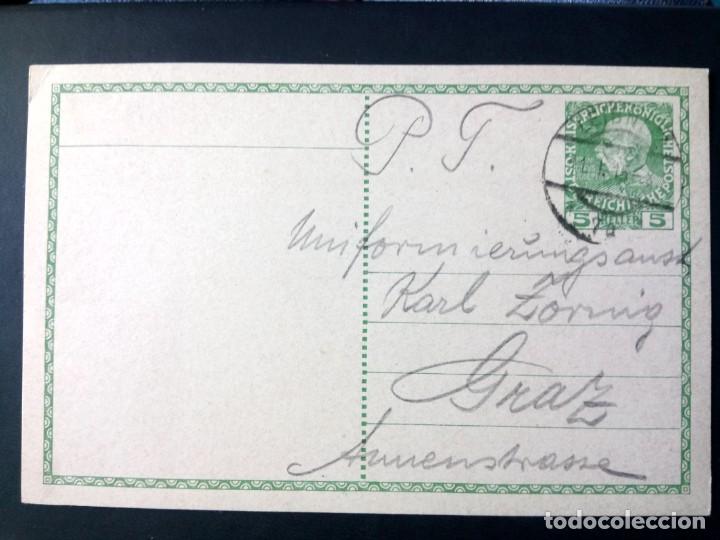 P. T.
KAISERLICHEKÖNIGLICHE
ÖSTERREICHISCHE POST
5 HELLER 5
Uniformierungsanst
Karl Zörnig
Graz
Annenstrasse
todocoleccion.net